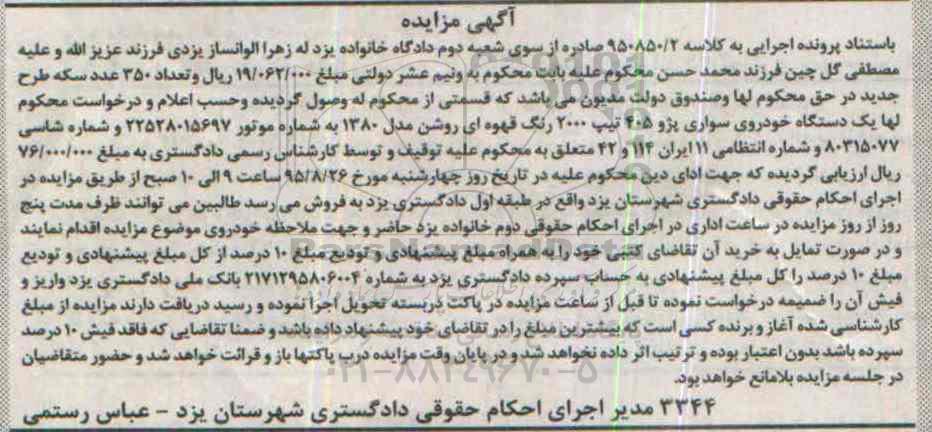 آگهی مزایده
باستناد پرونده اجرایی به کلاسه ۹۵۰۸۵۰/۲ صادره از سوی شعبه دوم دادگاه خانواده یزد له زهرا الوانساز یزدی فرزند عزیز الله و علیه
مصطفی گل چین فرزند محمد حسن محکوم علیه بابت محکوم به ونیم عشر دولتی مبلغ ۱۹/۰۶۲/۰۰۰ ریال وتعداد ۳۵۰ عدد سکه طرح
جدید در حق محکوم لها وصندوق دولت مدیون می باشد که قسمتی از محکوم له وصول گردیده وحسب اعلام و درخواست محکوم
لها یک دستگاه خودروی سواری پژو ۴۰۵ تیپ ۲۰۰۰ رنگ قهوه ای روشن مدل ۱۳۸۰ به شماره موتور ۲۲۵۲۸۰۱۵۶۹۷ و شماره شاسی
۸۰۳۱۵۰۷۷ و شماره انتظامی ۱۱ ایران ۱۱۴ و ۴۲ متعلق به محکوم علیه توقیف و توسط کارشناس رسمی دادگستری به مبلغ ۷۶/۰۰۰/۰۰۰
ریال ارزیابی گردیده که جهت ادای دین محکوم علیه در تاریخ روز چهارشنبه مورخ ۹۵/۸/۲۶ ساعت ۹ الی ۱۰ صبح از طریق مزایده در
اجرای احکام حقوقی دادگستری شهرستان یزد واقع در طبقه اول دادگستری یزد به فروش می رسد طالبین می توانند ظرف مدت پنج
روز از روز مزایده در ساعت اداری در اجرای احکام حقوقی دوم خانواده یزد حاضر و جهت ملاحظه خودروی موضوع مزایده اقدام نمایند
و در صورت تمایل به خرید آن تقاضای کتبی خود را به همراه مبلغ پیشنهادی و تودیع مبلغ ۱۰ درصد از کل مبلغ پیشنهادی و تودیع
مبلغ ۱۰ درصد را کل مبلغ پیشنهادی به حساب سپرده دادگستری یزد به شماره ۲۱۷۱۲۹۵۸۰۶۰۰۴ بانک ملی دادگستری یزد واریز و
فیش آن را ضمیمه درخواست نموده تا قبل از ساعت مزایده در پاکت دربسته تحویل اجرا نموده و رسید دریافت دارند مزایده از مبلغ
کارشناسی شده آغاز و برنده کسی است که بیشترین مبلغ را در تقاضای خود پیشنهاد داده باشد و ضمنا تقاضایی که فاقد فیش ۱۰ درصد
سپرده باشد بدون اعتبار بوده و ترتیب اثر داده نخواهد شد و در پایان وقت مزایده درب پاکتها باز و قرائت خواهد شد و حضور متقاضیان
در جلسه مزایده بلامانع خواهد بود.
۳۳۴۴ مدیر اجرای احکام حقوقی دادگستری شهرستان یزد - عباس رستمی
ParsNamadData
۰۲۱-۸۸۳۴۹۶۷۰-۵